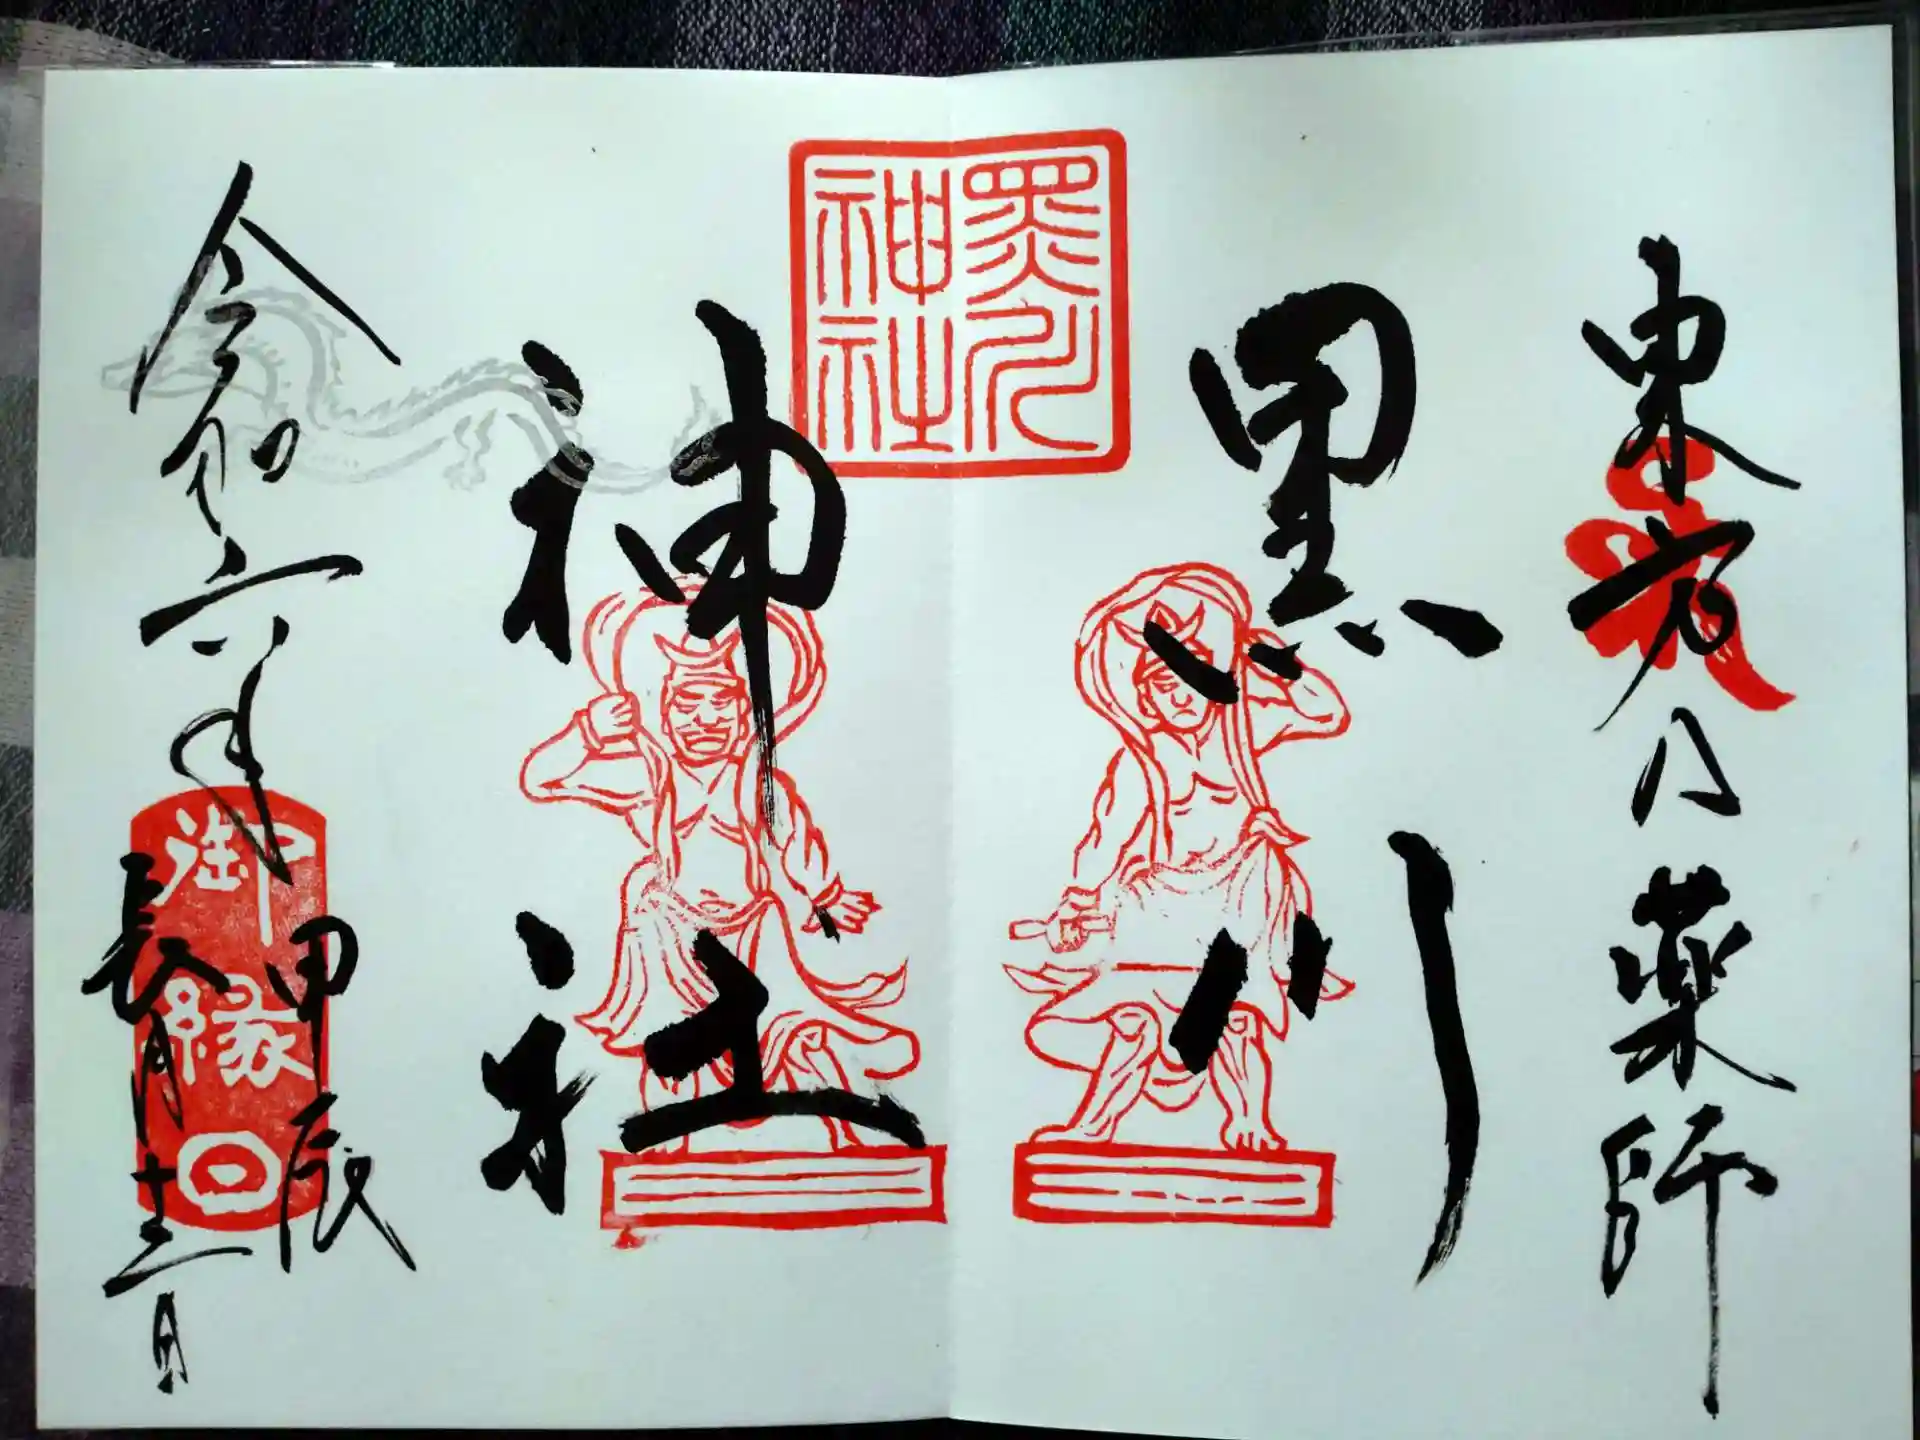 東方乃薬師
黒川
神社
黒川
神社
令和六年
甲辰
長月十三日
御縁